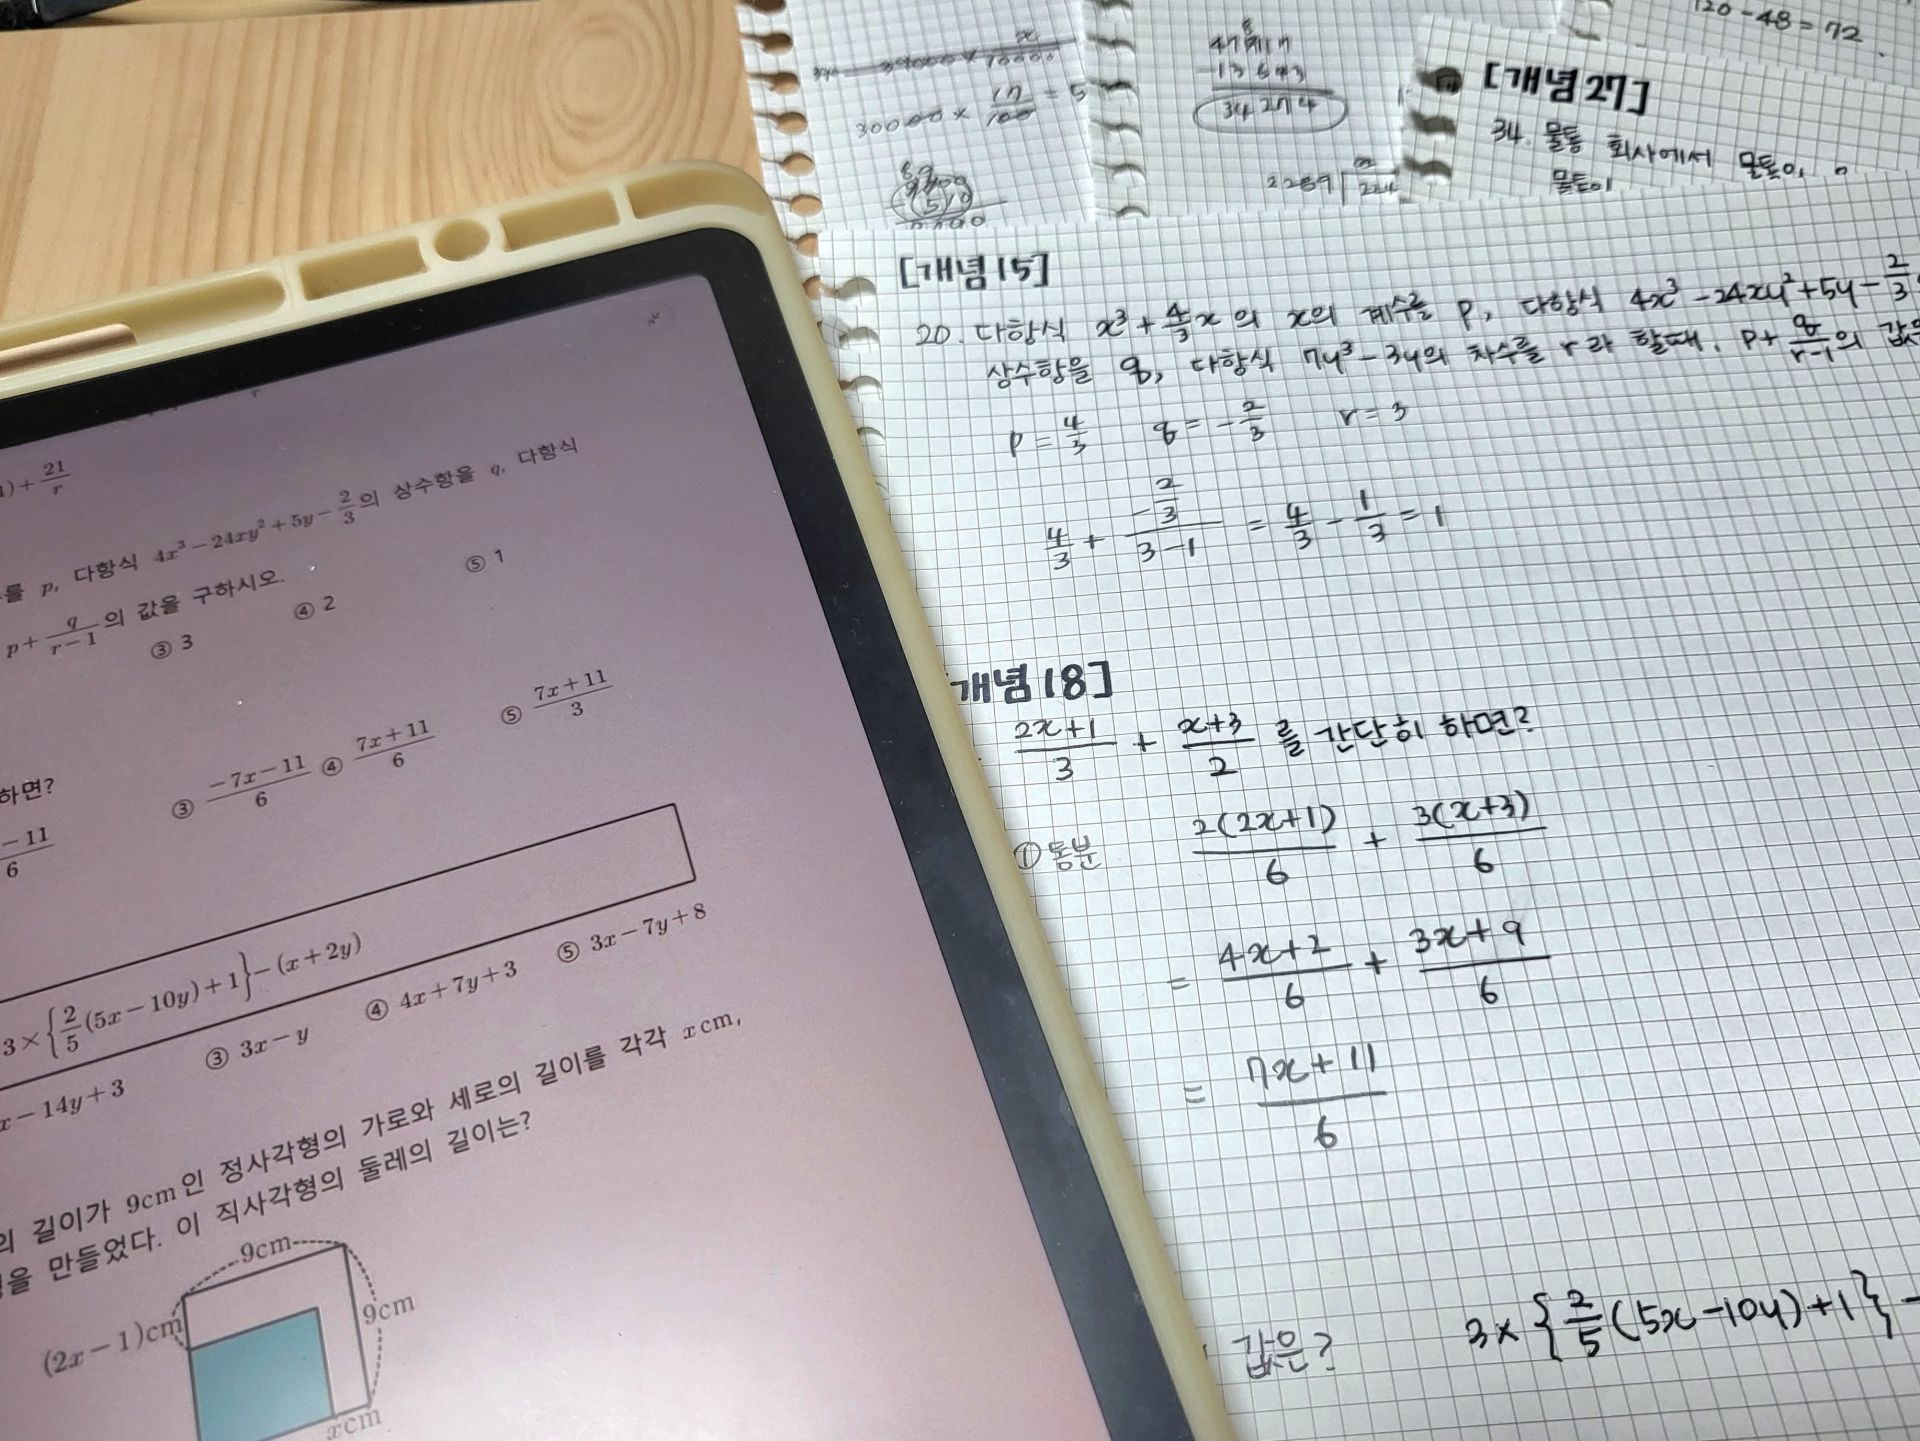 +21/r
를 p, 다항식 4x³-24xy²+5y-2/3의 상수항을 q, 다항식
p+q/(r-1)의 값을 구하시오.
③ 3 ④ 2 ⑤ 1
하면?
-11/6 ③ (-7x-11)/6 ④ (7x+11)/6 ⑤ (7x+11)/3
3×{2/5(5x-10y)+1}-(x+2y)
x-14y+3 ③ 3x-y ④ 4x+7y+3 ⑤ 3x-7y+8
의 길이가 9cm인 정사각형의 가로와 세로의 길이를 각각 xcm,
을 만들었다. 이 직사각형의 둘레의 길이는?
9cm
9cm
(2x-1)cm
xcm
30000 × 17/100 = 5
-13643
34274
2289
120-48=72
[개념 27]
34. 물통 회사에서 물통이
물통이
[개념 15]
20. 다항식 x³+4/3x의 x의 계수를 p, 다항식 4x³-24xy²+5y-2/3
상수항을 q, 다항식 7y³-3y의 차수를 r라 할때, p+q/(r-1)의 값
p=4/3 q=-2/3 r=3
4/3+(-2/3)/(3-1)=4/3-1/3=1
개념 18]
(2x+1)/3 + (x+3)/2 를 간단히 하면?
① 통분 2(2x+1)/6 + 3(x+3)/6
= (4x+2)/6 + (3x+9)/6
= (7x+11)/6
값은? 3×{2/5(5x-10y)+1}-